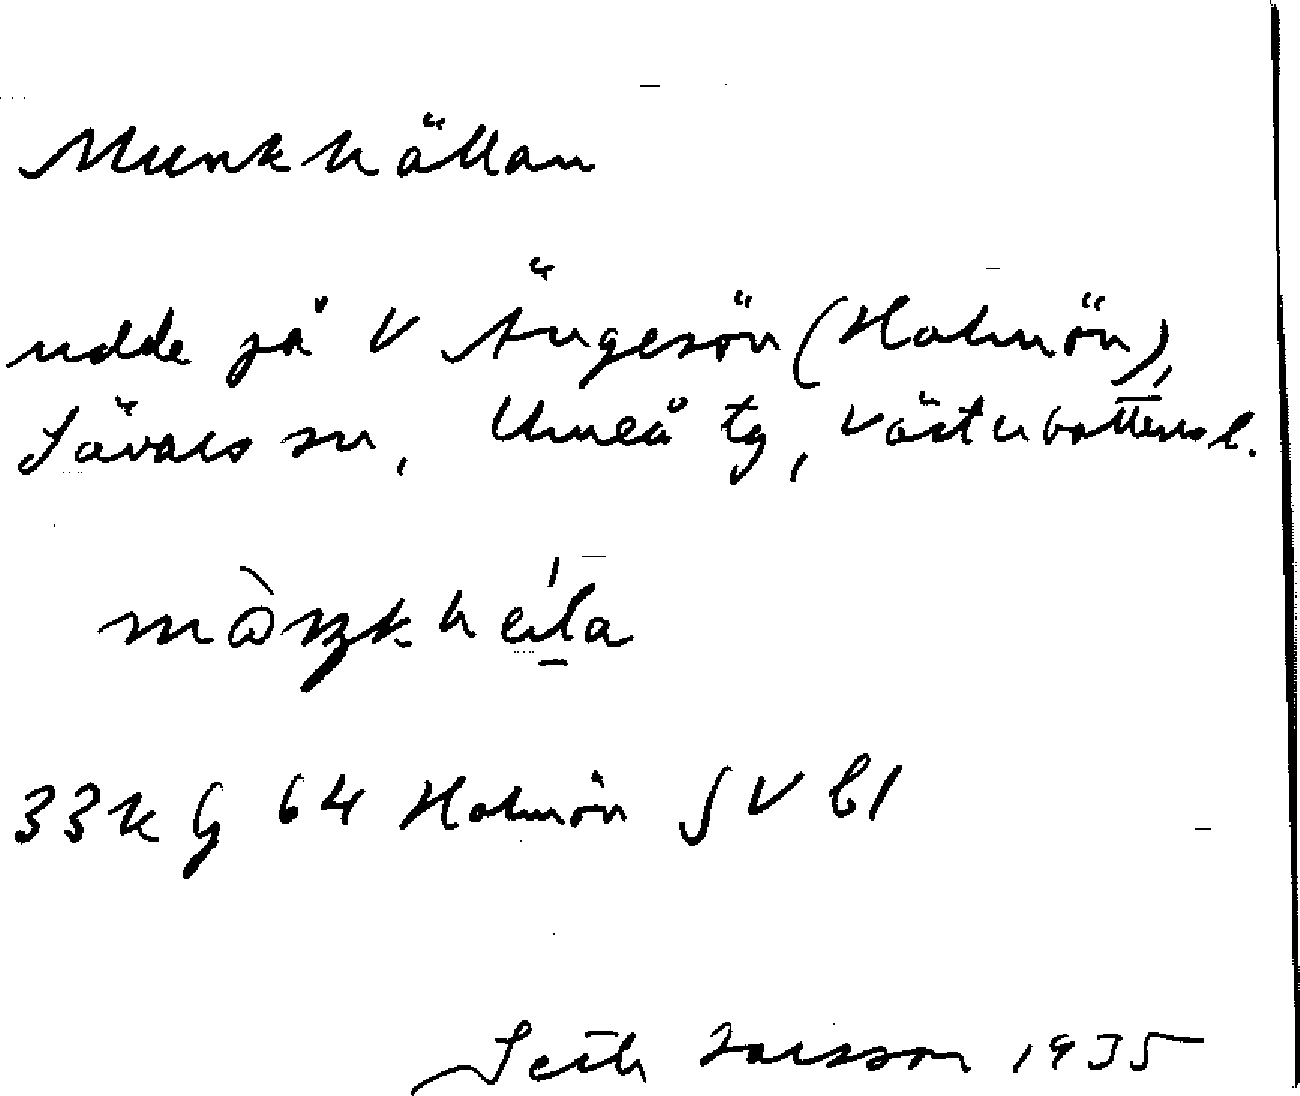 Munkhällan
udde på V Ängesön (Holmön),
Sävars sn, Umeå tg, Västerbottens l.
33k G 64 Holmön SV bl
Seth Larsson 1935